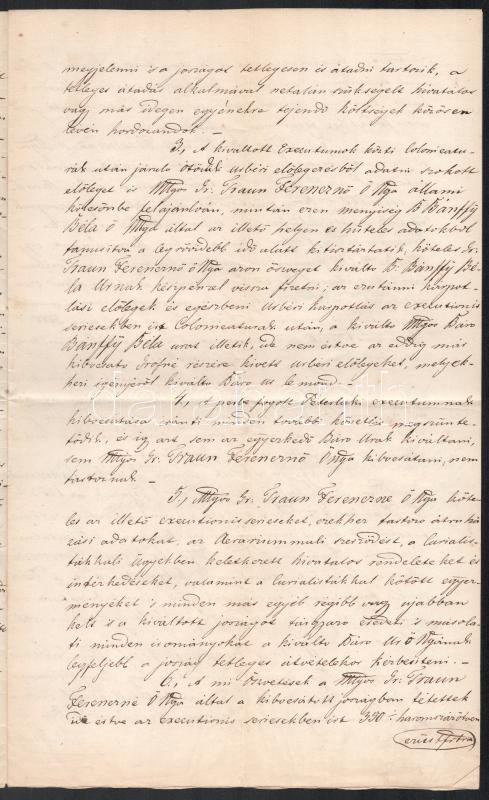 megjelenni is a jószágot tetlegesen és átadni tartozik, a
tetleges átadás alkalmával netalán szükségelt hivatalos
vagy más idegen egyénekre tejendő költséget közösen
levén hordozandók. –
3., A kiváltott Executumok közti Colonicatu-
rák után járuló ötödik Urbéri előlegezésből adatni szokott
előleget is Mgos Gr. Traun Ferencznő Ő Nga állami
kölcsönbe felajánlván, miután ezen menyiség B. Bánffy
Béla Ő Nga által az illető helyen és hiteles adatokból
tanusitva a legrövidebb idő alatt kitisztáztatik, köteles Gr.
Traun Ferencznő Ő Nga azon összveget kiváltó B. Bánffy Bé-
la Urnak készpénzel vissza fizetni; az ezutánni kárpot-
lási előlegek és egészbeni Urbéri kárpotlás az executionis
seriesekben irt Colonicaturák után, a kiváltó Mgos Báró
Bánffy Béla urat illetik, ide nem értve az eddig már
kibocsáto Grófné részére kivett urbéri előlegeket, melyek-
heri igényjéről kiváltó Báro Ur le mond. –
4., A perbe fogott executumnak
kibocsátása iránti minden további követés megszünte-
tődik, és igy azt sem az egyezkedő Báro Urak kiváltani,
sem Mgos Gr. Traun Ferencznő Ő Nga kibocsátani, nem
tartoznak. –
5., Mgos Gr. Traun Ferenczné Ő Nga köte-
les az illető executionis serieseket, ezekhez tartozo átruhá-
zási adatokat, az Aerariummali szerződést, a Curialis-
tákkali ügyekben keletkezett hivatalos rendeleteket és
intézkedéseket, valamint a Curialistákkal kötött egyez-
ményeket 's minden más egyéb régibb vagy ujabban
kelt is a kiváltott jószágot tárgyazo eredeti is másola-
ti minden irományokat a kiváltó Báro Ur Ő Ngának
legfeljebb a jószág tetleges átvételekor kézbesíteni. –
6., A mi Özvetések a Mgos Gr. Traun
Ferenczné Ő Nga által a kibocsátott jószágban tétettek
ide értve az executionis seriesekben irt 350: háromszázötven
ezüst frtra